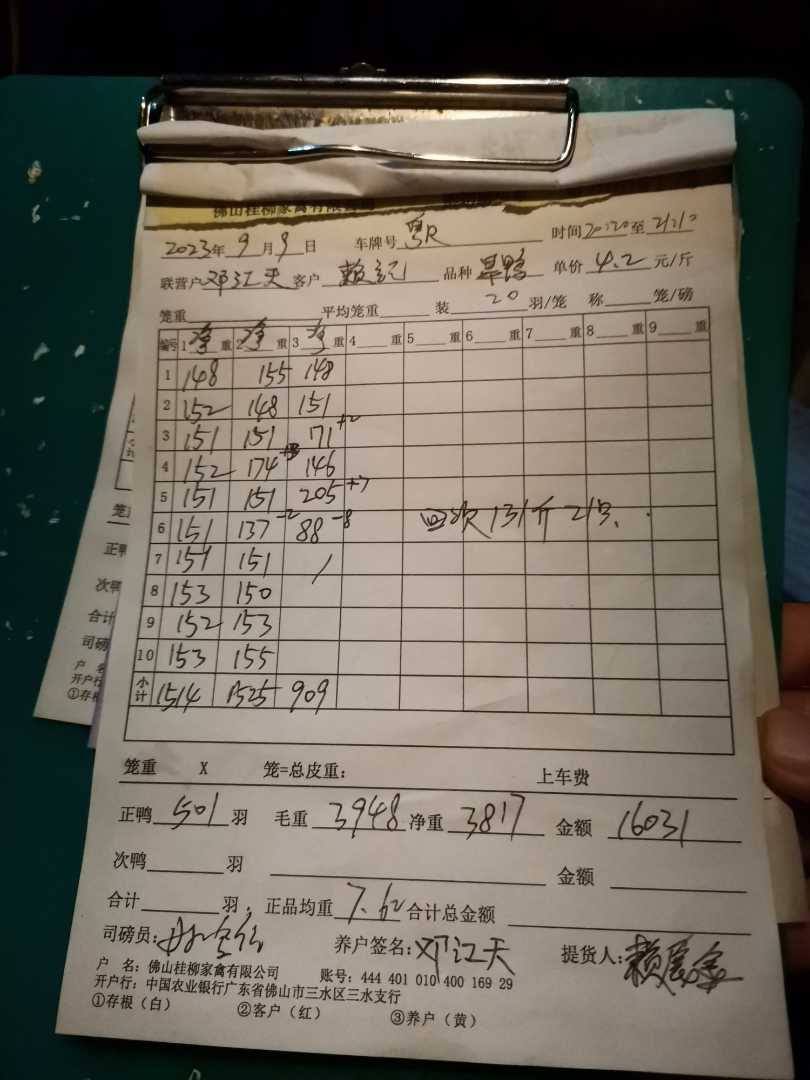 佛山桂柳家禽有限公司
2023年 9月 9日 车牌号 粤R 时间 20:20 至 21:10
联营户 邓江天 客户 赖记 品种 旱鸭 单价 4.2 元/斤
笼重 平均笼重 装 20 羽/笼 称 笼/磅
编号 1 净 重 2 净 重 3 净 重 4 重 5 重 6 重 7 重 8 重 9 重
1 148 155 148
2 152 148 151
3 151 151 71 +2
4 152 174 146
5 151 151 205 +7
6 151 137 -2 88 -8 回次 131斤 21只
7 151 151 /
8 153 150
9 152 153
10 153 155
小计 1514 1525 909
笼重 X 笼=总皮重: 上车费
正鸭 501 羽 毛重 3948 净重 3817 金额 16031
次鸭 羽 金额
合计 羽, 正品均重 7.62 合计总金额
司磅员: 养户签名: 邓江天 提货人:
户 名: 佛山桂柳家禽有限公司 账号: 444 401 010 400 169 29
开户行: 中国农业银行广东省佛山市三水区三水支行
①存根(白) ②客户(红) ③养户(黄)